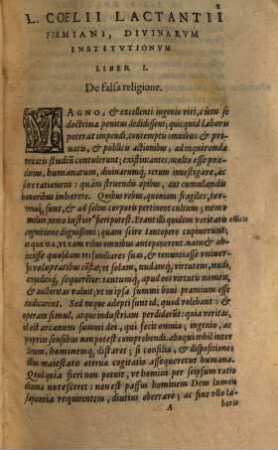 2
L. COELII LACTANTII
FIRMIANI, DIVINARVM
INSTITVTIONVM
LIBER I.
De falsa religione.
MAGNO, & excellenti ingenio viri, cùm se
doctrinæ penitus dedidissent, quicquid laboris
poterat impendi, contemptis omnibus & pri-
uatis, & publicis actionibus, ad inquirendæ
veritatis studium contulerunt; existimantes, multo esse præ-
clarius, humanarum, diuinarumq́; rerum inuestigare, ac
scire rationem: quàm struendis opibus, aut cumulandis
honoribus inhærere. Quibus rebus, quoniam fragiles, ter-
renæq́; sunt, & ad solius corporis pertinent cultum; nemo
melior, nemo iustior fieri potest. Erant illi quidem veritatis
cognitione dignissimi; quam scire tantopere cupiuerunt;
atque ita, vt eam rebus omnibus anteponerent. nam & ab-
iecisse quosdam res familiares suas, & renuntiasse vniuer-
sis voluptatibus constat; vt solam, nudamq́; virtutem, nudi,
expeditiq́; sequerentur: tantum apud eos virtutis nomen,
& auctoritas valuit; vt in ipsa summi boni præmium esse
iudicarent. Sed neque adepti sunt id, quod volebant: &
operam simul, atque industriam perdiderunt: quia veritas,
id est arcanum summi dei, qui fecit omnia, ingenio, ac
proprijs sensibus non potest comprehendi. alioqui nihil inter
deum, hominemq́; distaret; si consilia, & dispositiones
illius maiestatis æternæ cogitatio assequeretur humana.
Quod quia fieri non potuit, vt homini per seipsum ratio
diuina notesceret: non est passus hominem Deus lumen
sapientiæ requirentem, diutius oberrare; ac sine vllo la-
A
boris